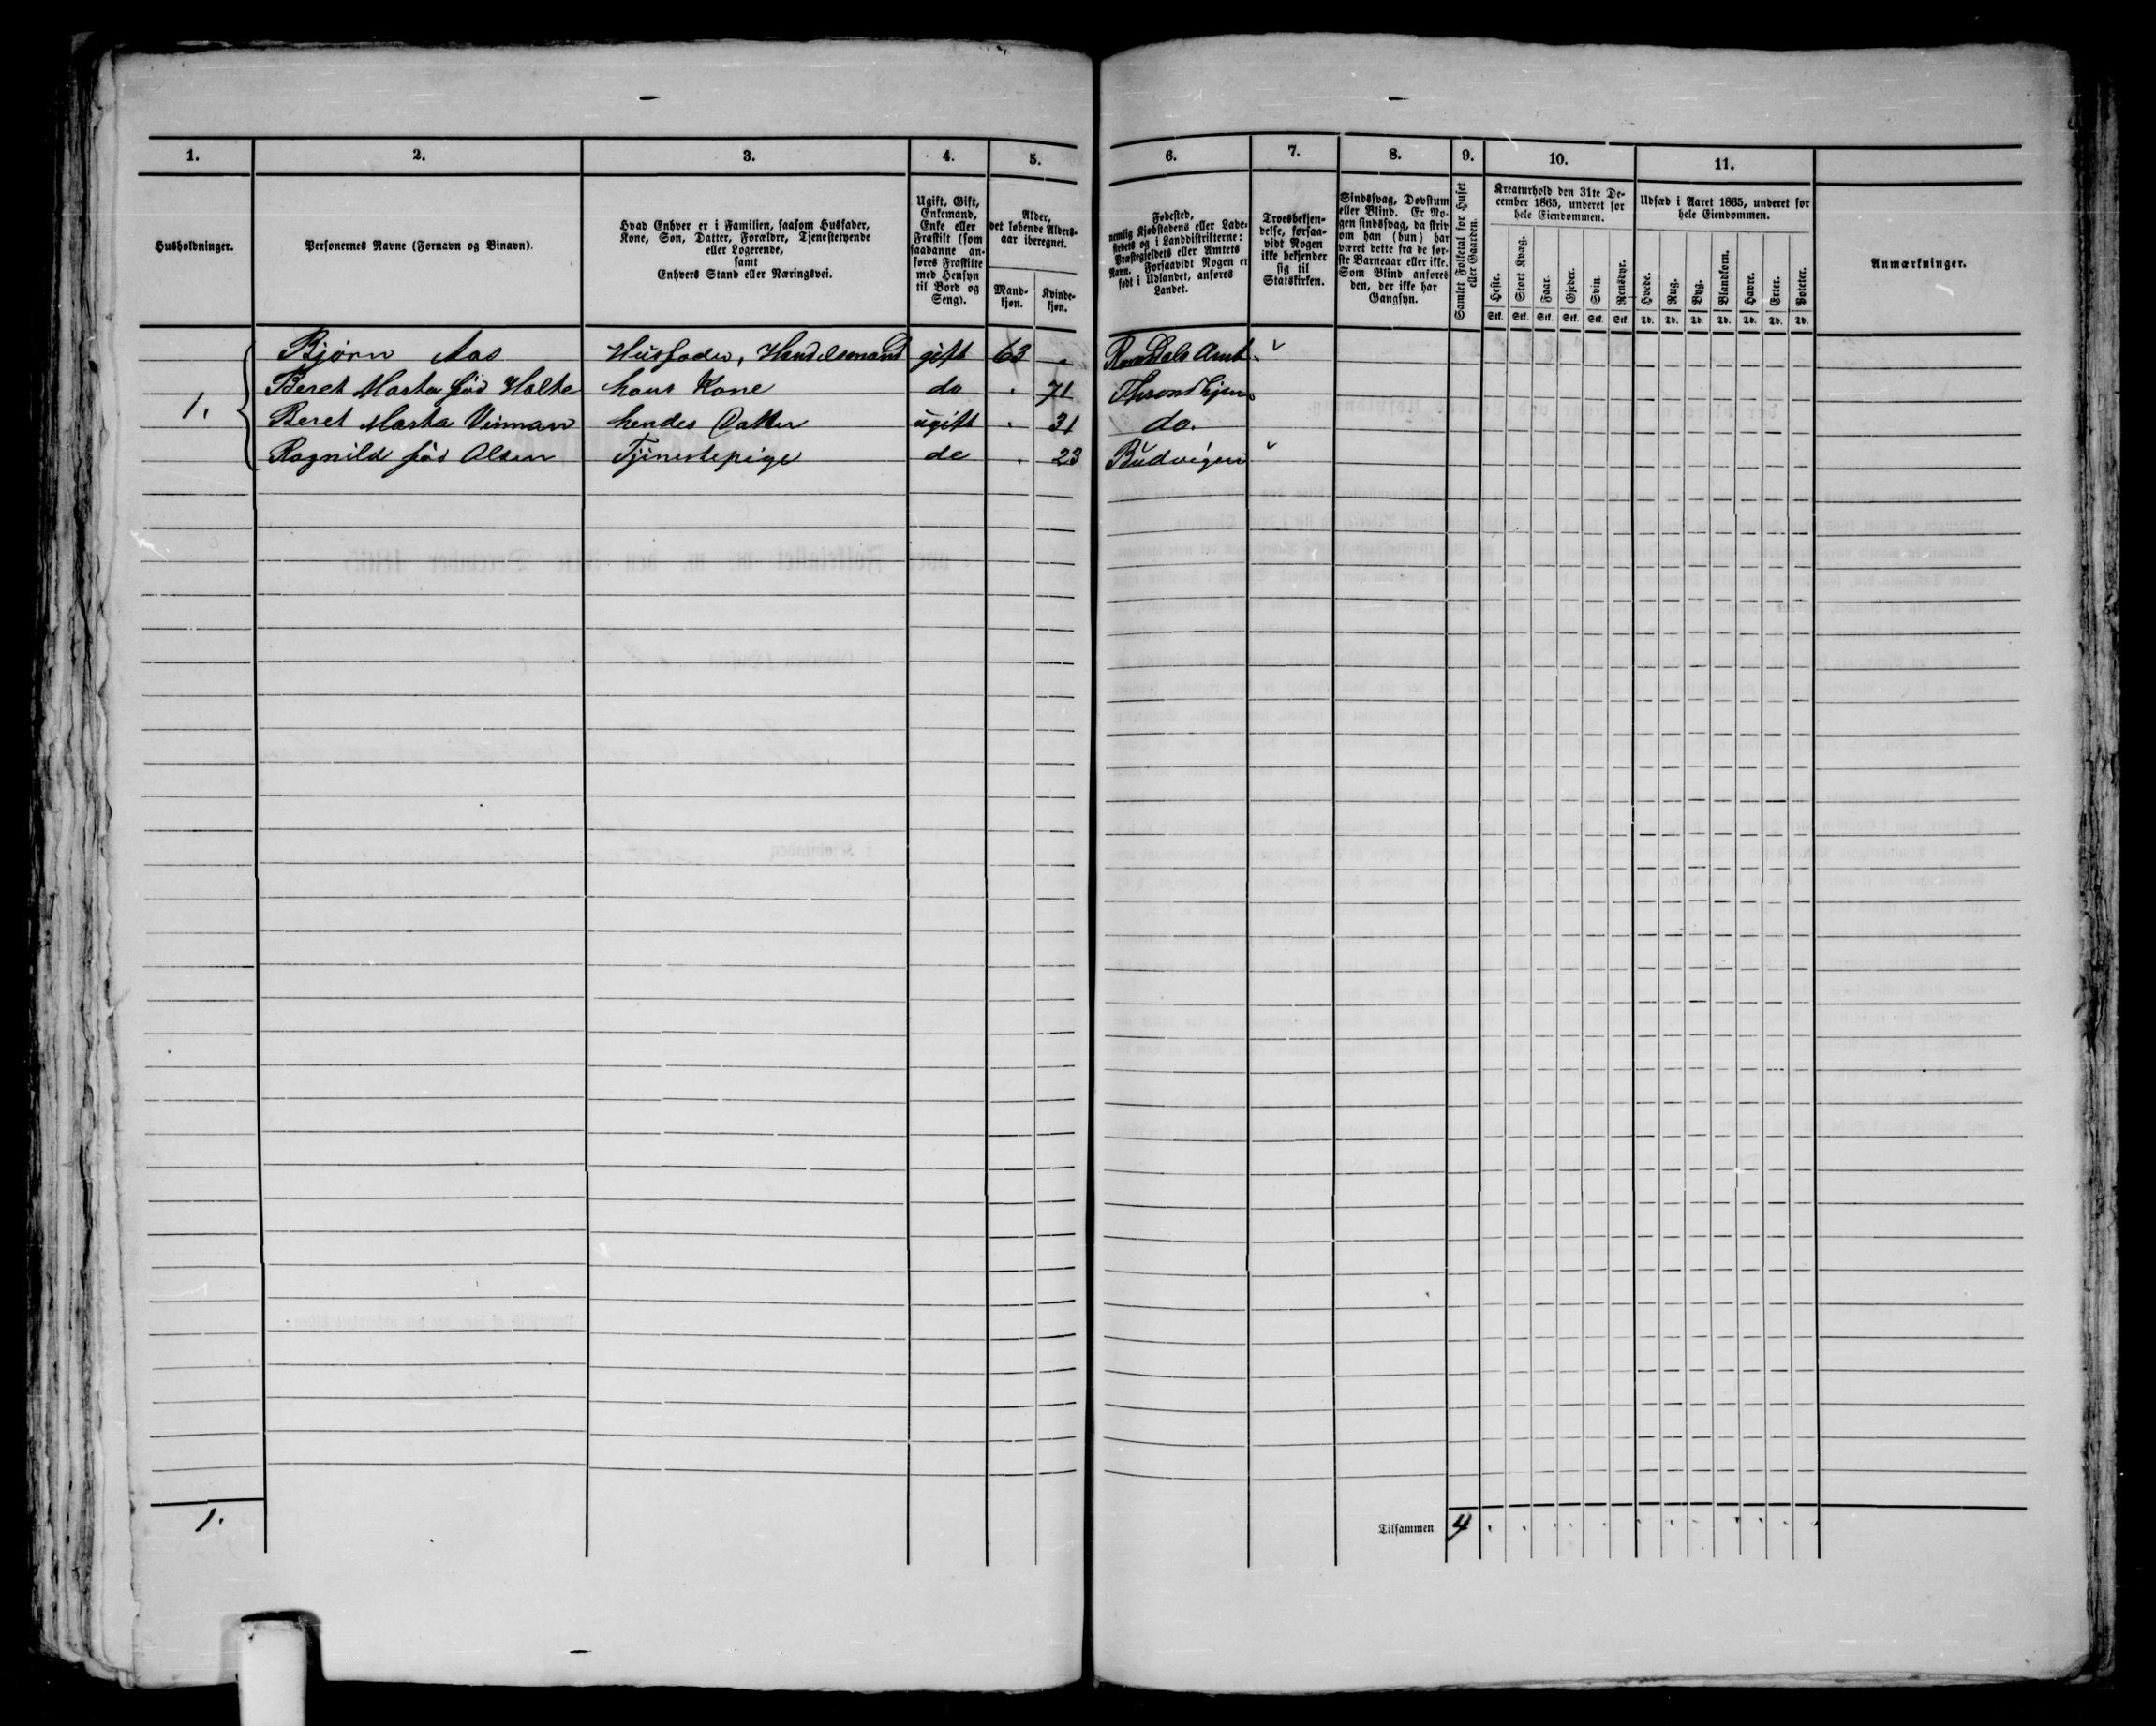 1. 2. 3. 4. 5. 6. 7. 8. 9. 10. 11.
Husholdninger.
Personernes Navne (Fornavn og Binavn).
Hvad Enhver er i Familien, saasom Husfader,
Kone, Søn, Datter, Forældre, Tjenestetyende
eller Logerende,
samt
Enhvers Stand eller Næringsvei.
Ugift, Gift,
Enkemand,
Enke eller
Fraskilt (som
saadanne an-
føres Fraskilte
med Hensyn
til Bord og
Seng).
Alder,
det løbende Alders-
aar iberegnet.
Mand-
kjøn.
Kvinde-
kjøn.
Fødested,
nemlig Kjøbstadens eller Lade-
stedets og i Landdistrikterne:
Præstegjeldets eller Amtets
Navn. Forsaavidt Nogen er
født i Udlandet, anføres
Landet.
Troesbekjen-
delse, forsaa-
vidt Nogen
ikke bekjender
sig til
Statskirken.
Sindssvag, Døvstum
eller Blind. Er No-
gen sindssvag, da skriv
om han (hun) har
været dette fra de før-
ste Barneaar eller ikke.
Som Blind anføres
den, der ikke har
Gangsyn.
Samlet Folketal for Huset
eller Gaarden.
Kreaturhold den 31te De-
cember 1865, underet for
hele Eiendommen.
Heste. Stort Kvæg. Faar. Gjeder. Svin. Rensdyr.
Stk. Stk. Stk. Stk. Stk. Stk.
Udsæd i Aaret 1865, underet for
hele Eiendommen.
Hvede. Rug. Byg. Blandkorn. Havre. Erter. Poteter.
Td. Td. Td. Td. Td. Td. Td.
Anmærkninger.
Bjørn Aas Husfader, Handelsmand gift 63 Romsdals Amt
Beret Marta fød Holte hans Kone do 71 Throndhjem
1. Beret Marta Vinman hendes Datter ugift 31 do.
Ragnild fød Olsen Tjenestepige do 23 Budvigen
1. Tilsammen 4